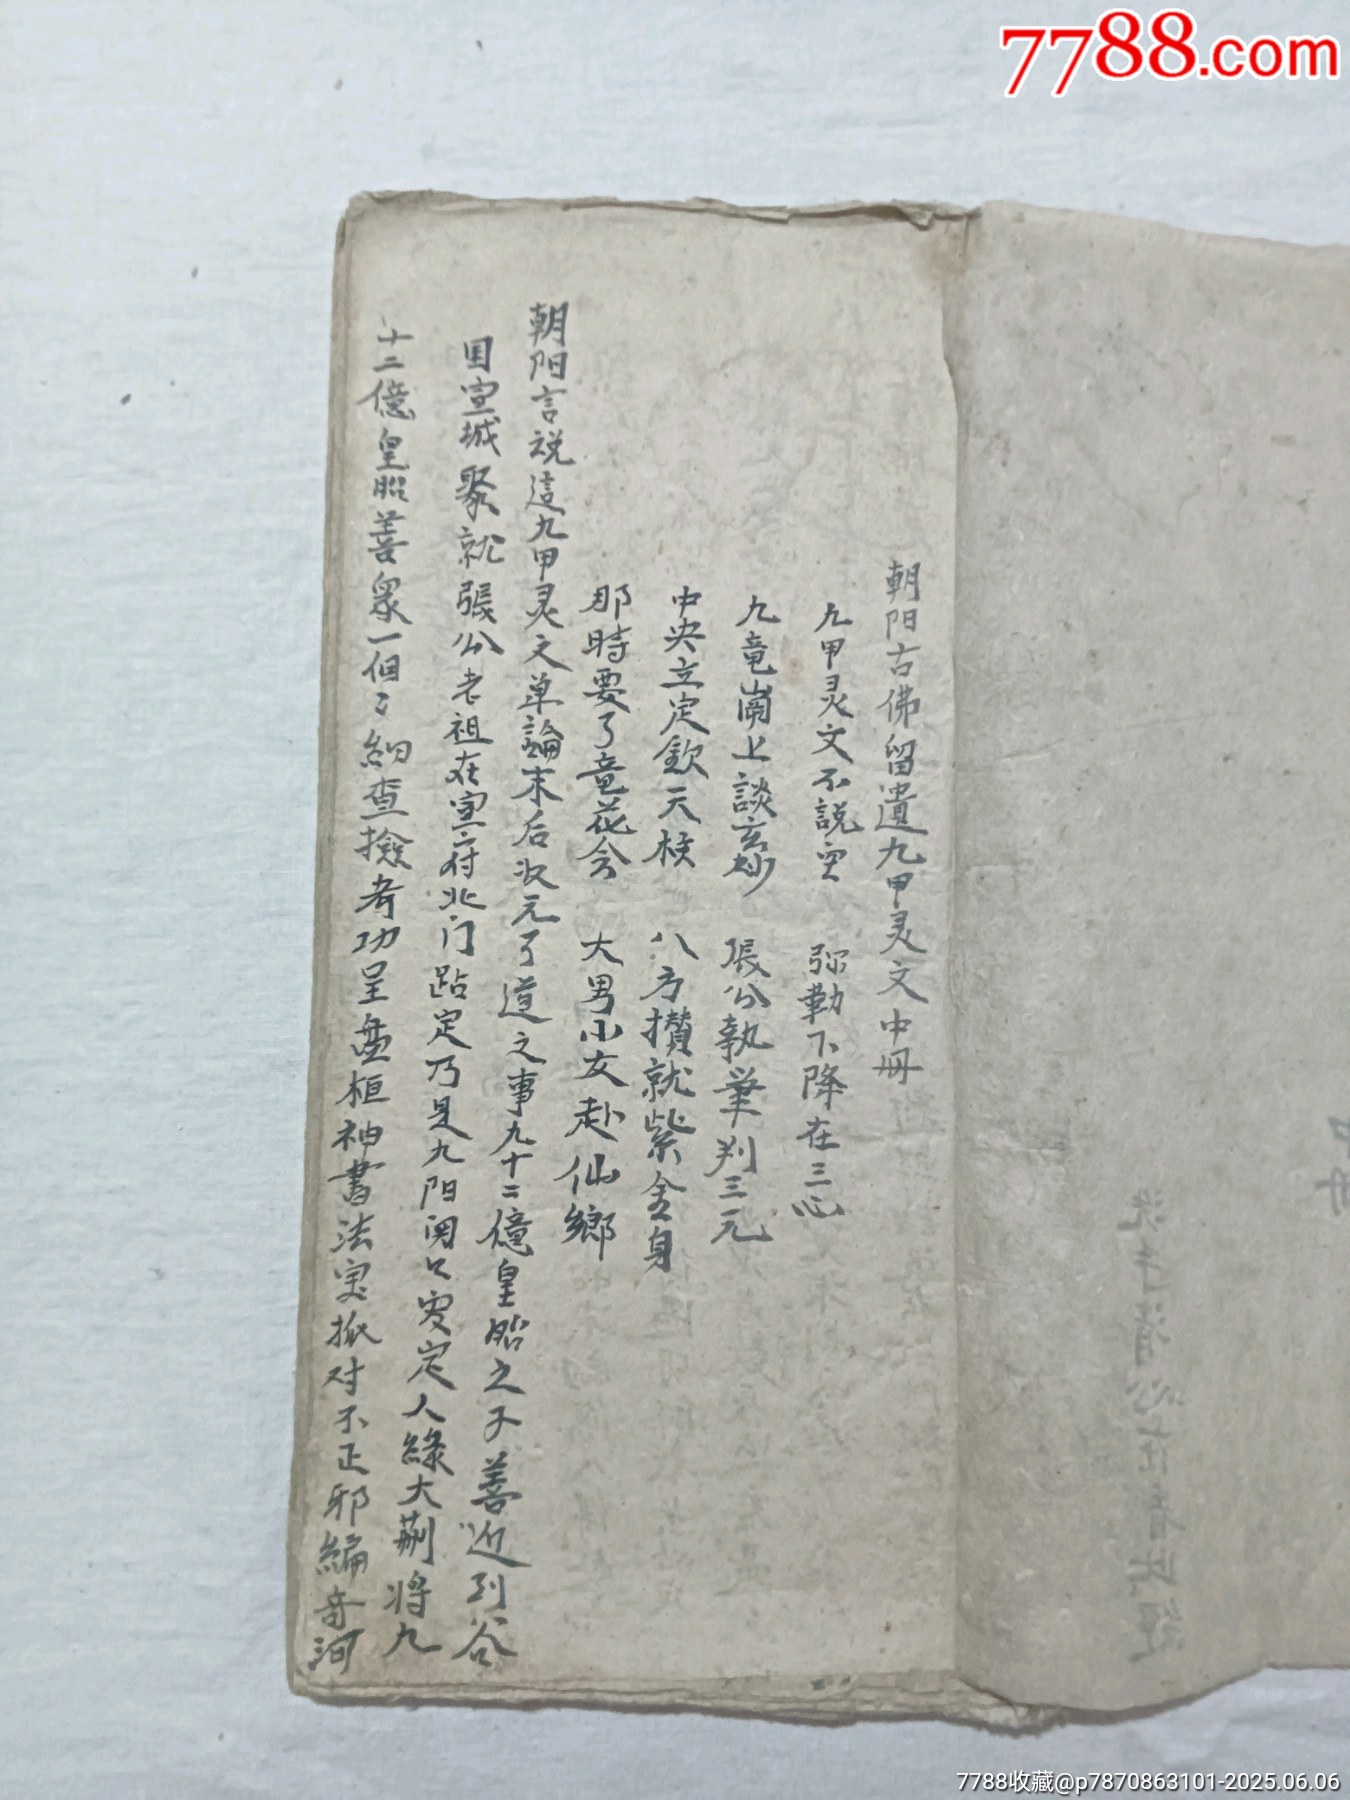 7788.com
朝阳古佛留遺九甲灵文中冊
九甲灵文不説空 弥勒下降在三心
九竜崗上談玄妙 張公執筆判三元
中央立定欽天榜 八方攅就紫金身
那時要了竜花会 大男小女赴仙鄉
朝阳言説這九甲灵文单論末后收元了道之事九十二億皇胎之子善近到谷
国宣城聚就張公老祖在宣府北门跕定乃是九阳関口安定人緣大蒯将九
十二億皇胎善眾一個〻細查撿考功呈盘柜神書法宝抵对不正邪編奇河
中册
洗手清心在看此經
7788收藏@p7870863101-2025.06.06